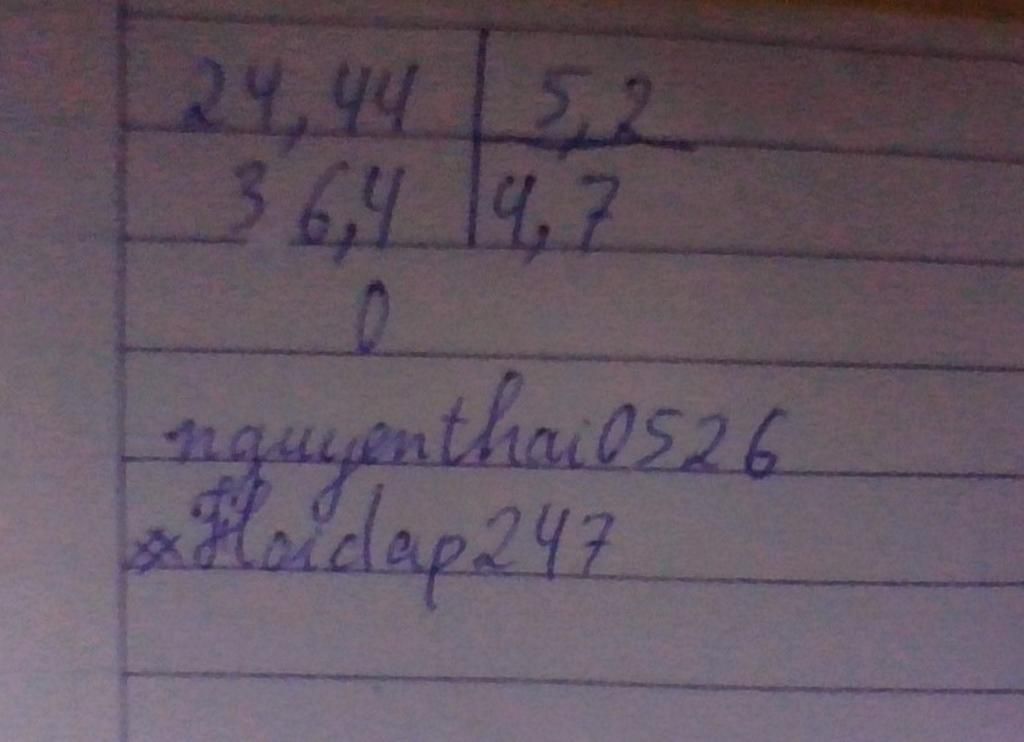 24,44 5,2
36,4 4,7
0
nguyenthai0526
Hoidap247